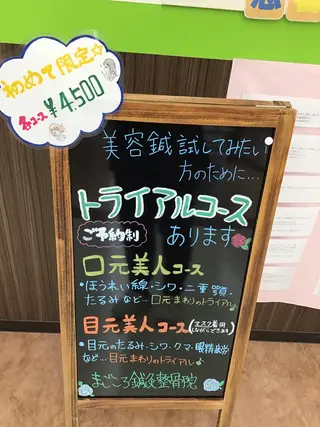 初めて限定☆
各コース ¥4,500
美容鍼試してみたい
方のために…
トライアルコース
ご予約制
あります
口元美人コース
・ほうれい線・シワ・二重顎・
たるみなど…口元まわりのトライアル♪
目元美人コース(マスク着用ながらできます)
・目元のたるみ・シワ・クマ・眼精疲労
など…目元まわりのトライアル♪
まごころ鍼灸整骨院